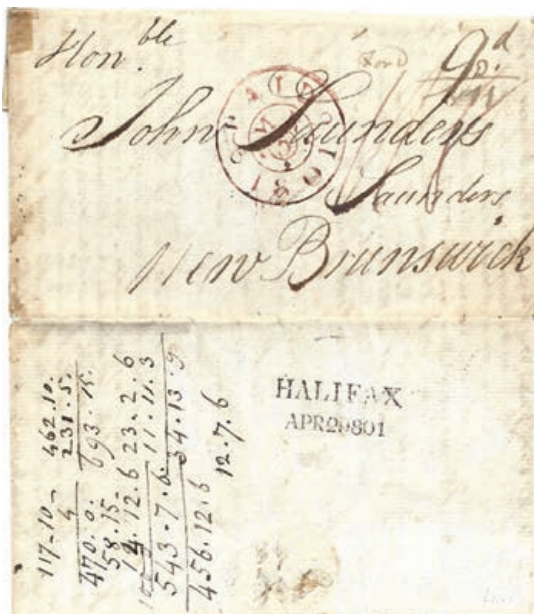 Hon.ble
9d
John Saunders
Saunders
New Brunswick
HALIFAX
APR20801
117-10- 462.10.
4 231.5.
470.0. 693.15.
58.15.
14.12.6 23.2.6
11.11.3
543.7.6 34.13.9
456.12.6
12.7.6